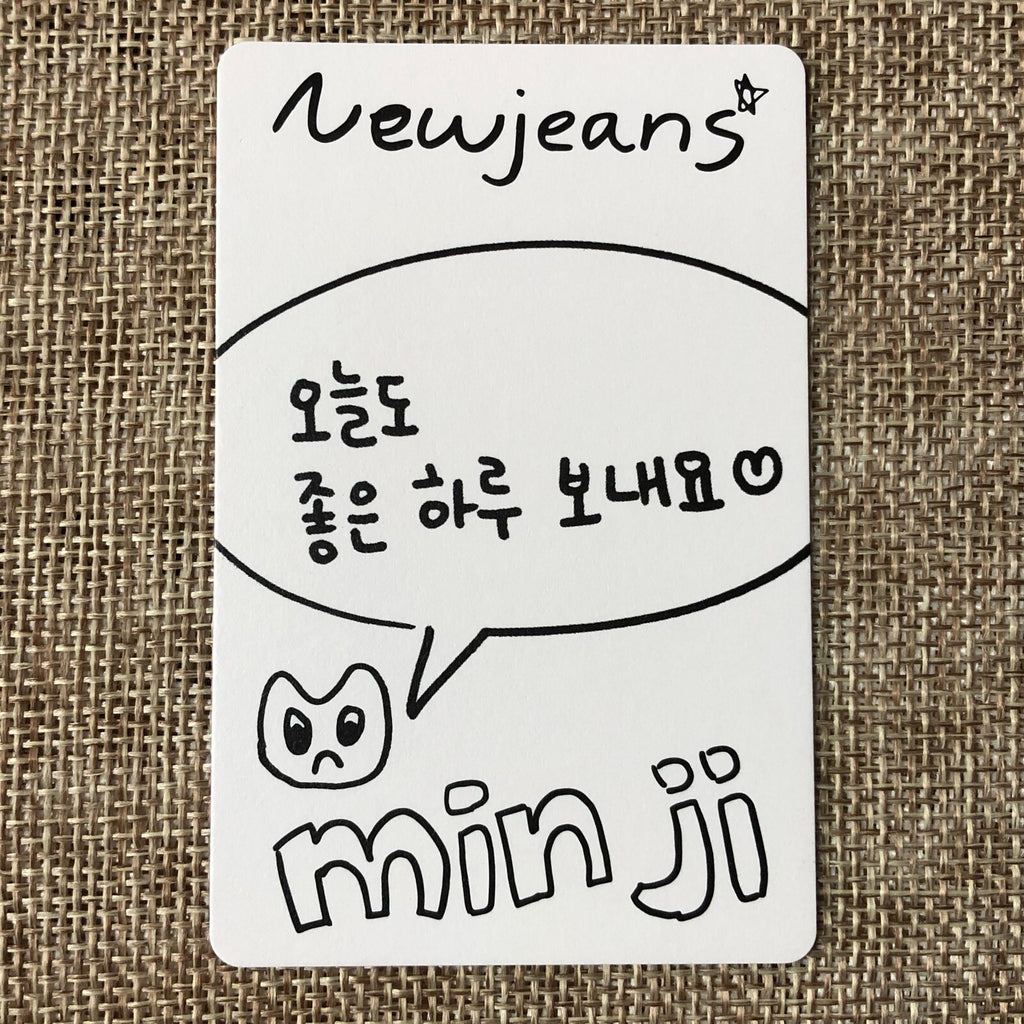 Newjeans
오늘도
좋은 하루 보내요♡
minji